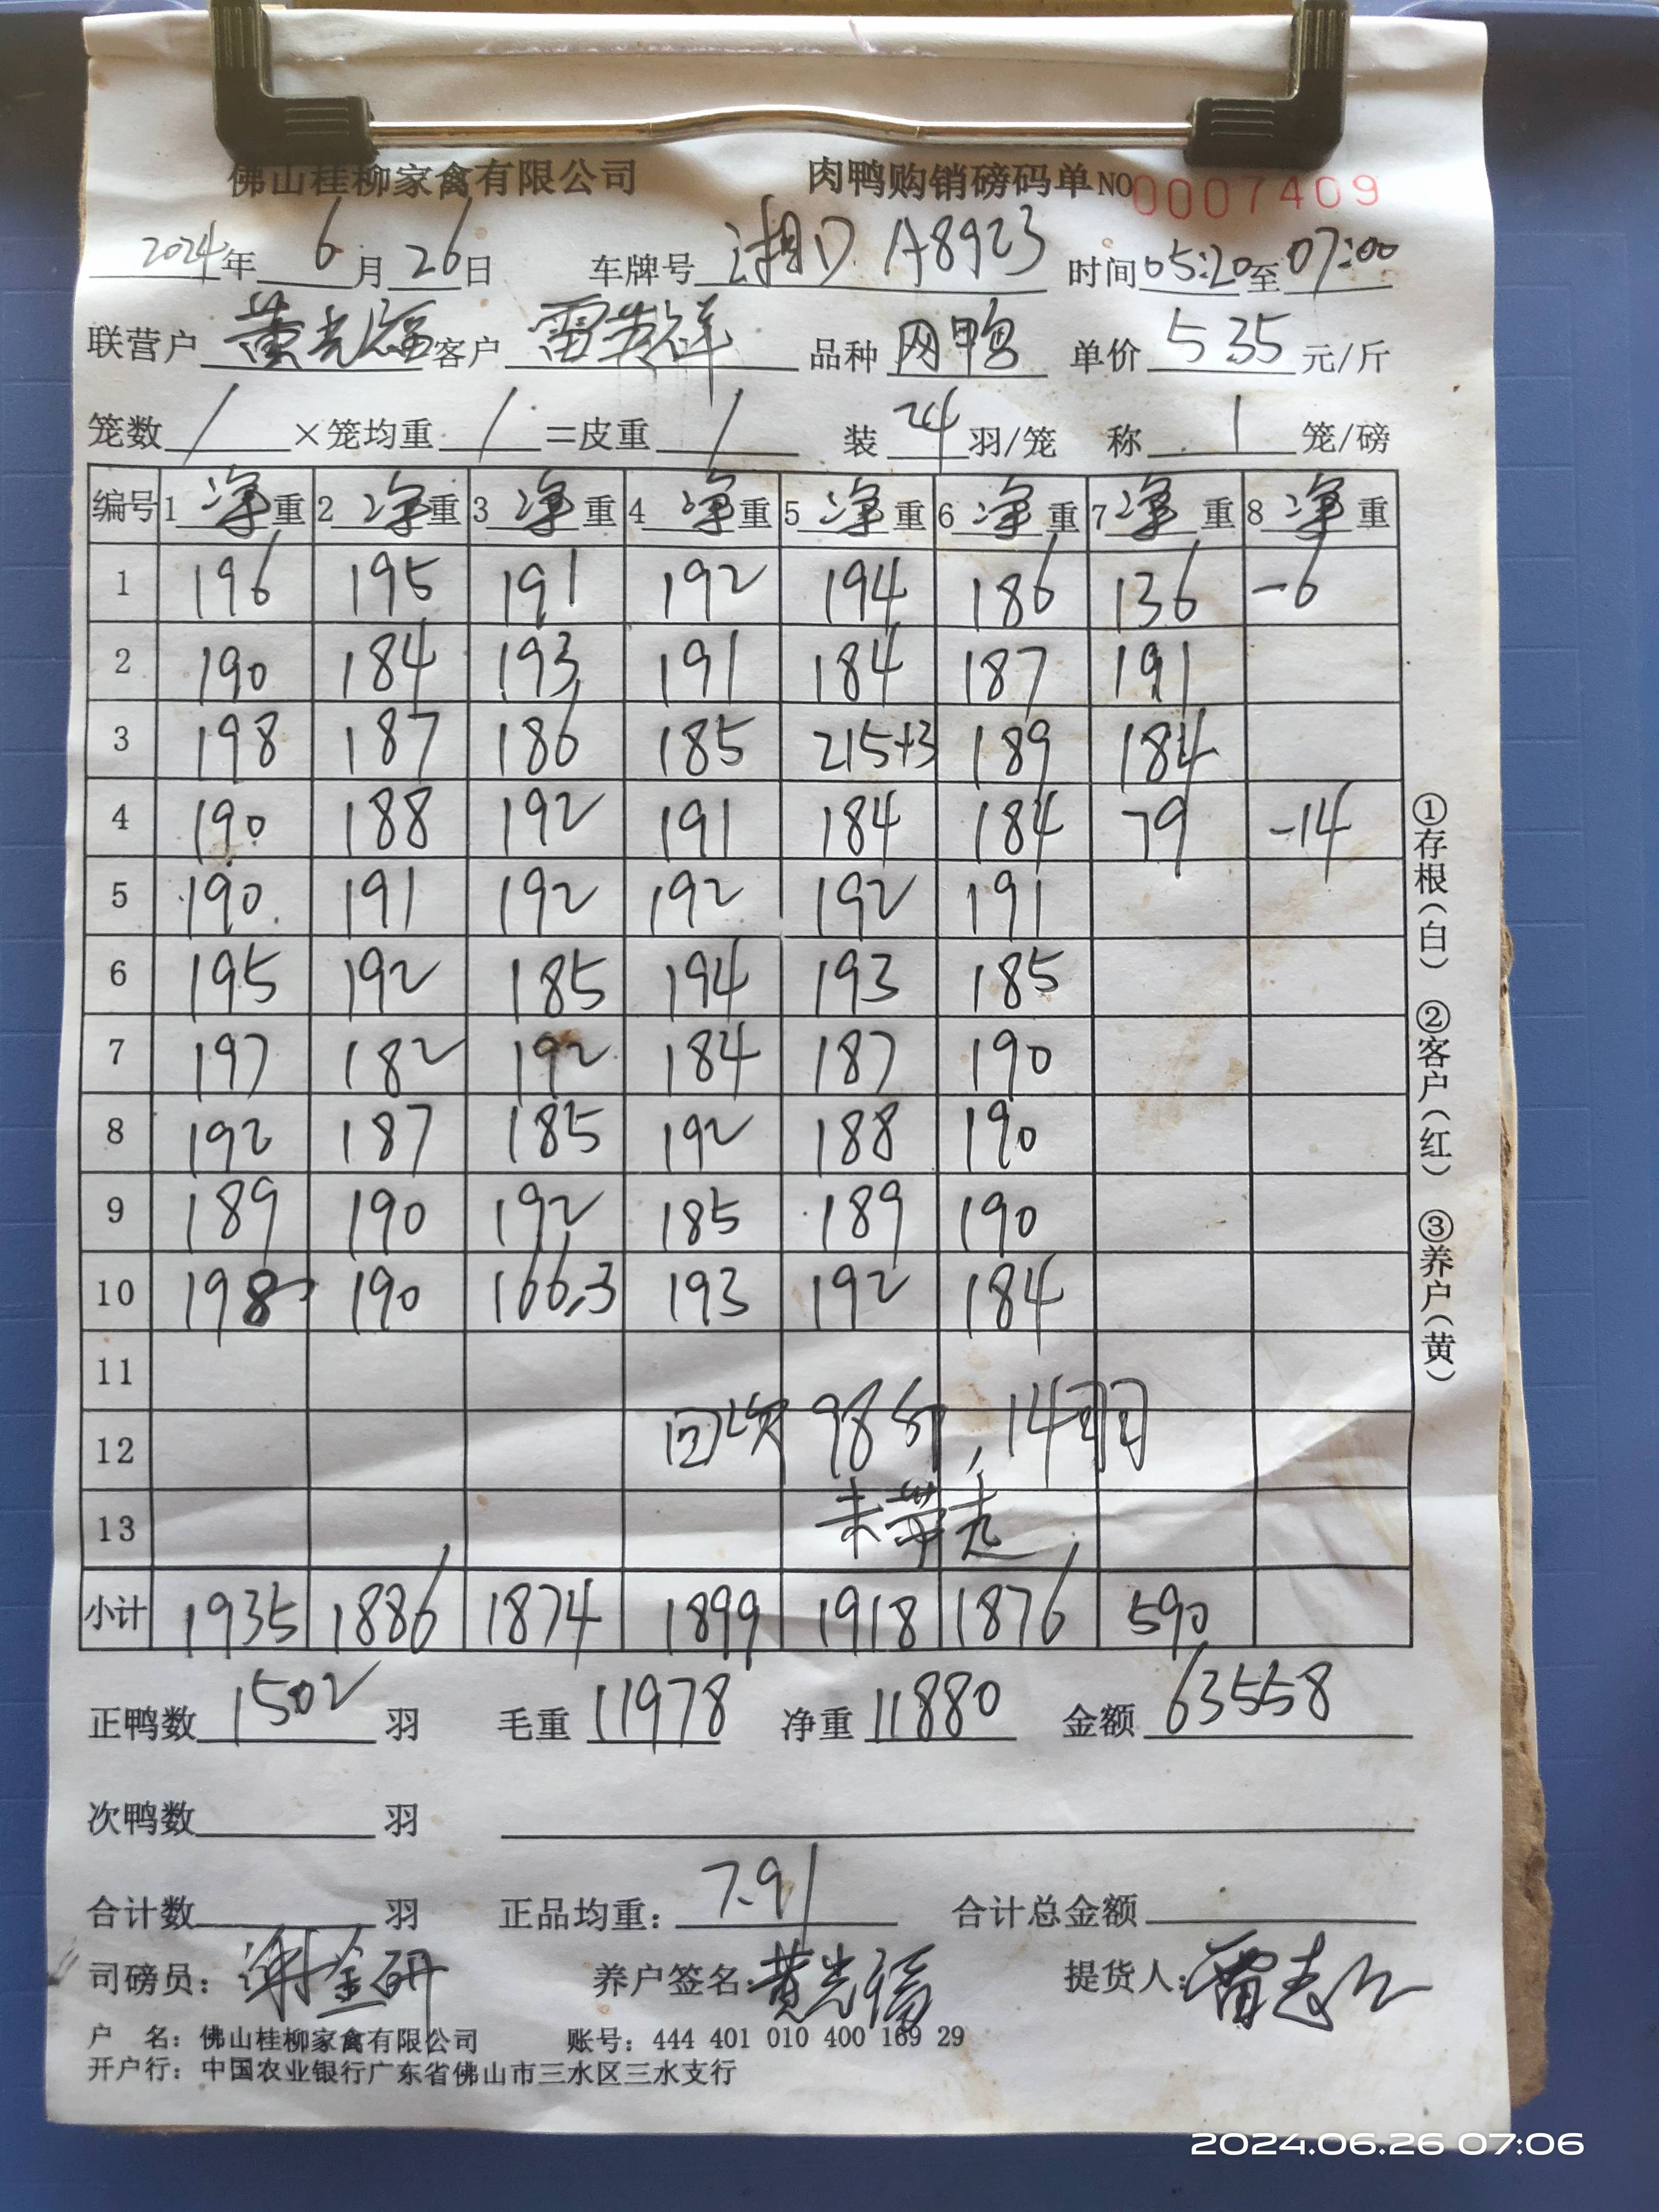 佛山桂柳家禽有限公司 肉鸭购销磅码单 NO 0007409
2024年 6月 26日 车牌号 湘D A8923 时间 05:20至 07:00
联营户 黄光 客户 雷 祥 品种 网鸭 单价 5.35 元/斤
笼数 / ×笼均重 / =皮重 / 装 24 羽/笼 称 1 笼/磅
编号 1 净重 2 净重 3 净重 4 净重 5 净重 6 净重 7 净重 8 净重
1 196 195 191 192 194 186 136 -6
2 190 184 193 191 184 187 191
3 198 187 186 185 215+3 189 184
4 190 188 192 191 184 184 79 -14
5 190 191 192 192 192 191
6 195 192 185 194 193 185
7 197 182 192 184 187 190
8 192 187 185 192 188 190
9 189 190 192 185 189 190
10 198 190 166.3 193 192 184
11
12 回次 98斤,14羽
13 未带走
小计 1935 1886 1874 1899 1918 1876 590
正鸭数 1502 羽 毛重 11978 净重 11880 金额 63558
次鸭数 羽
合计数 羽 正品均重: 7.91 合计总金额
司磅员: 谢金研 养户签名: 黄光 提货人: 雷志
户 名: 佛山桂柳家禽有限公司 账号: 444 401 010 400 169 29
开户行: 中国农业银行广东省佛山市三水区三水支行
①存根(白) ②客户(红) ③养户(黄)
2024.06.26 07:06